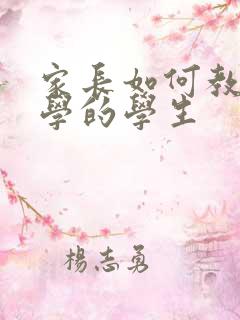 家長如何教
學的學生
楊志勇